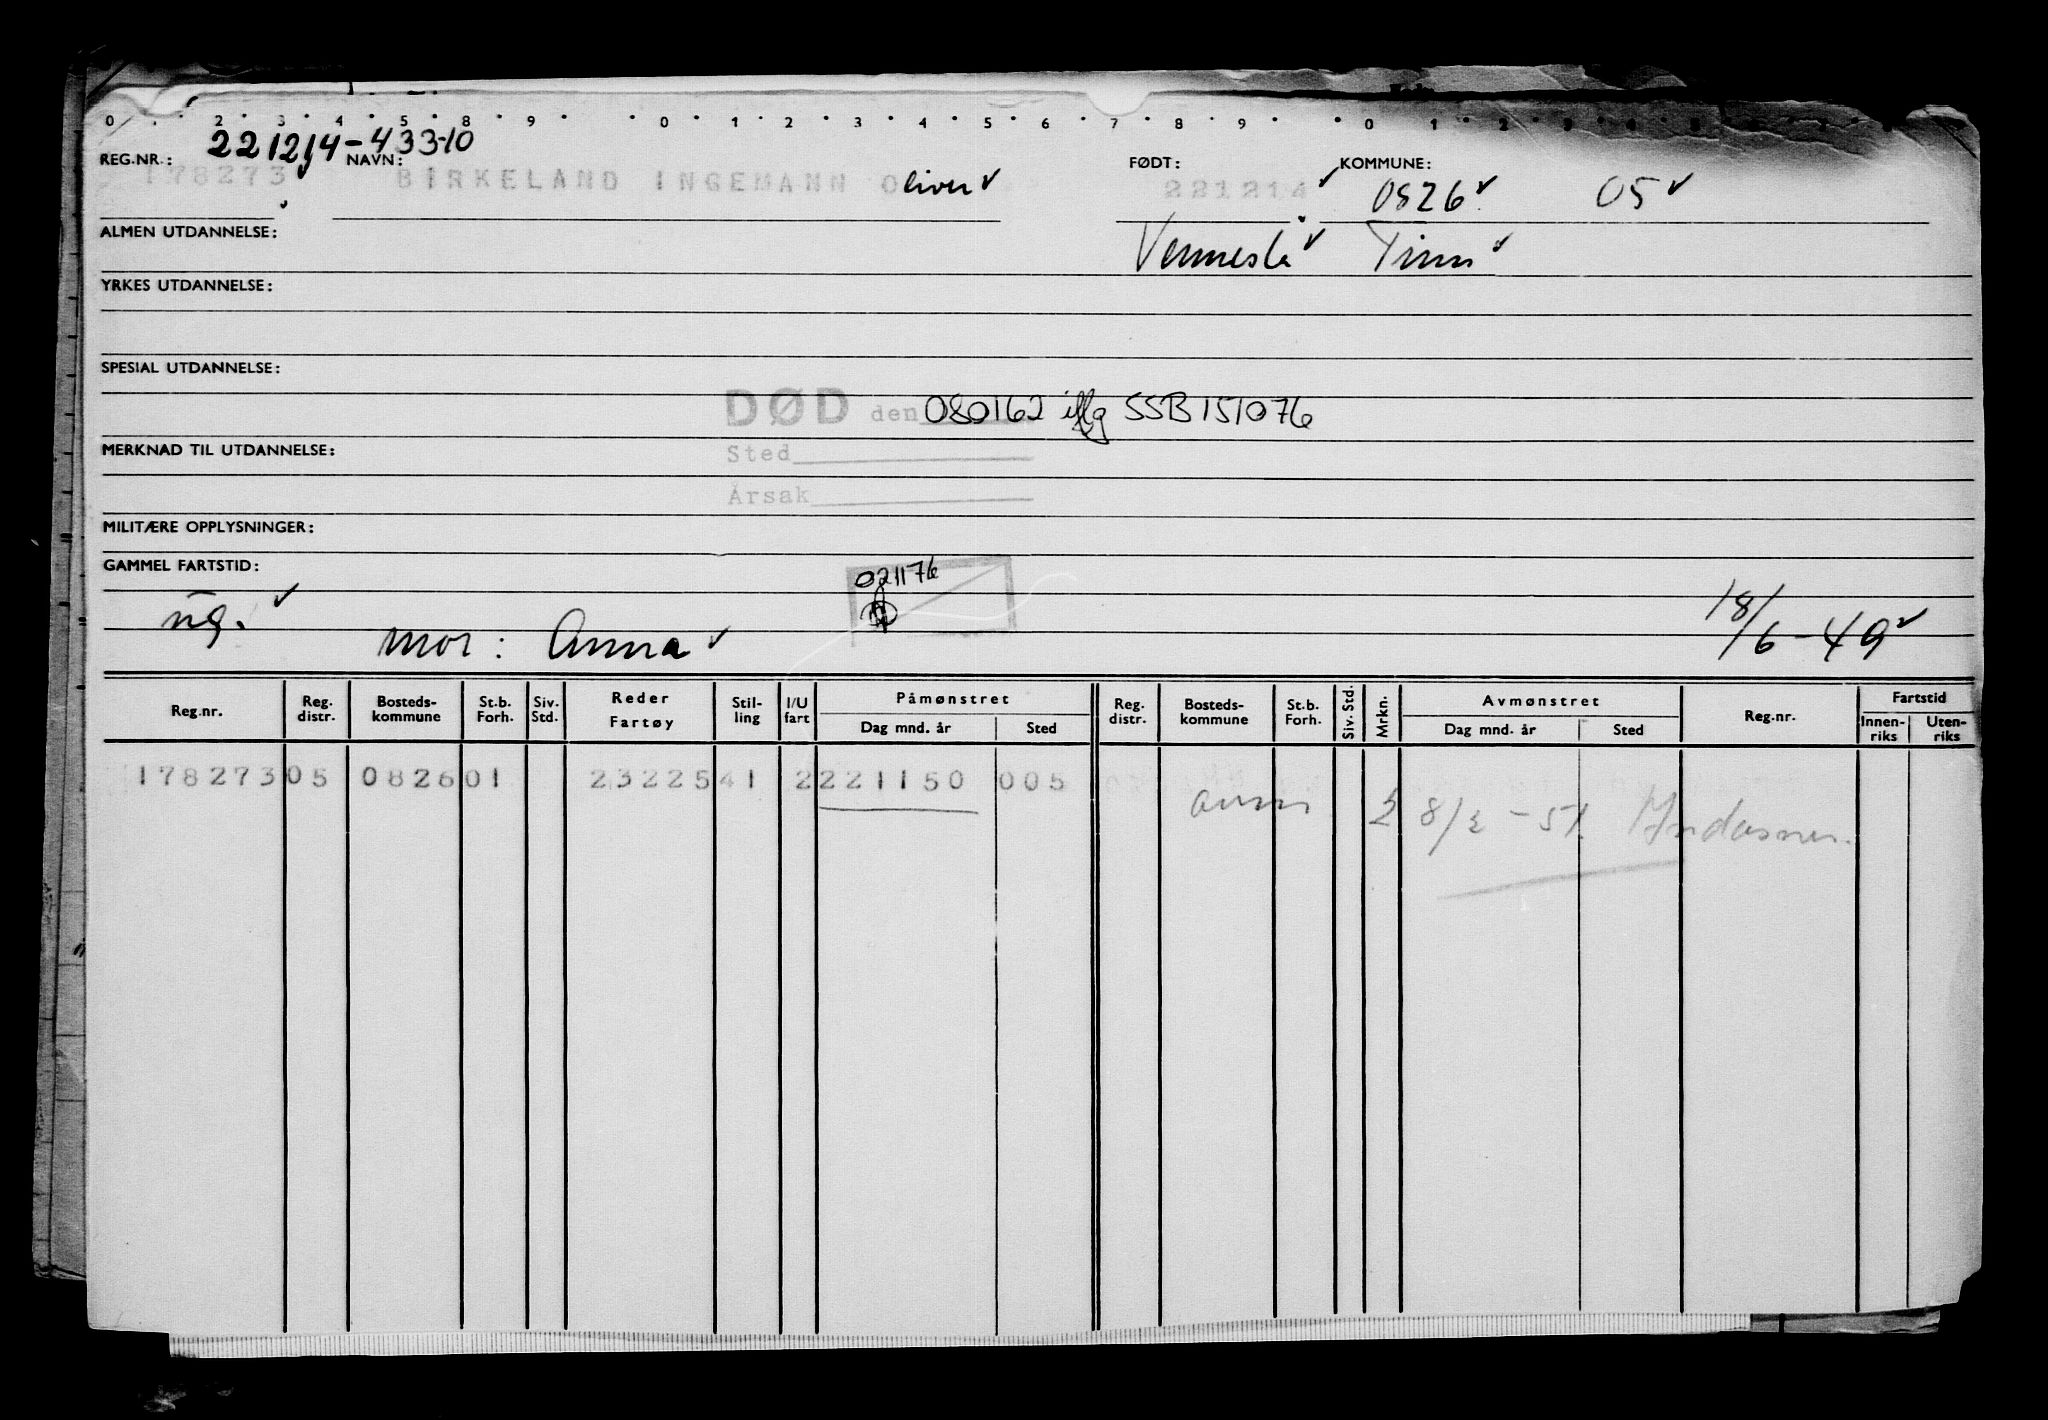 0 . . 2 . 3 . 4 . 5 . 8 . 9 . 0 . 1 . 2 . 3 . 4 . 5 . 6 . 7 . 8 . 9 . 0 . 1 . 2
221214-43310
REG.NR.: NAVN: FØDT: KOMMUNE:
178273 BIRKELAND INGEMANN Oliver ✓ 221214 ✓ 0826 ✓ 05 ✓
ALMEN UTDANNELSE: Vennesla ✓ Tinn ✓
YRKES UTDANNELSE:
SPESIAL UTDANNELSE:
DØD den 080162 iflg SSB 151076
MERKNAD TIL UTDANNELSE: Sted
Årsak
MILITÆRE OPPLYSNINGER:
GAMMEL FARTSTID: 021176
ug. ✓ mor: Anna ✓ 18/6-49 ✓
Reg.nr. Reg. distr. Bosteds-kommune St.b. Forh. Siv. Std. Reder Fartøy Stil-ling I/U fart Påmønstret Dag mnd. år Sted Reg. distr. Bosteds-kommune St.b. Forh. Siv. Std. Mrkn. Avmønstret Dag mnd. år Sted Reg.nr. Fartstid Innen-riks Uten-riks
178273 05 0826 01 23225 41 2 221150 005